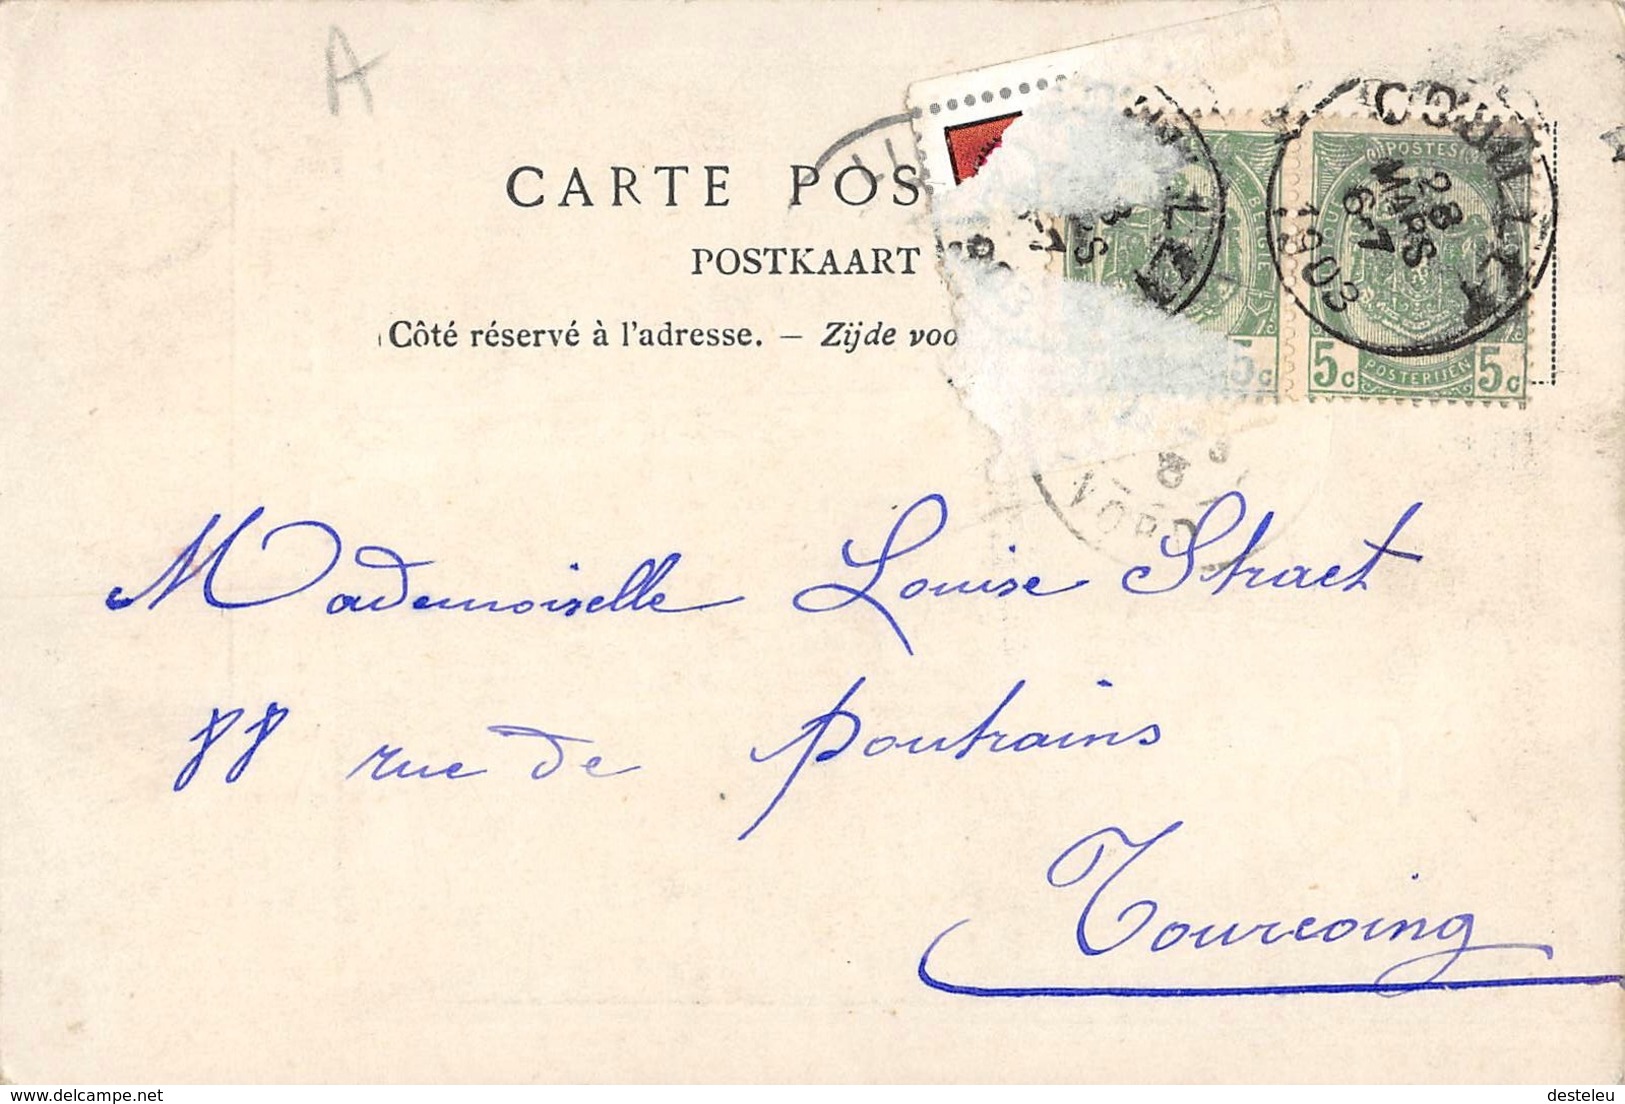 A
CARTE POS
POSTKAART
Côté réservé à l'adresse. — Zijde voo
POSTES
28
MARS
6-7
1903
BELGIË
5c
5c POSTERIJEN 5c
NORD
Mademoiselle Louise Straet
88 rue de Poutrains
Tourcoing
delcampe.net
desteleu